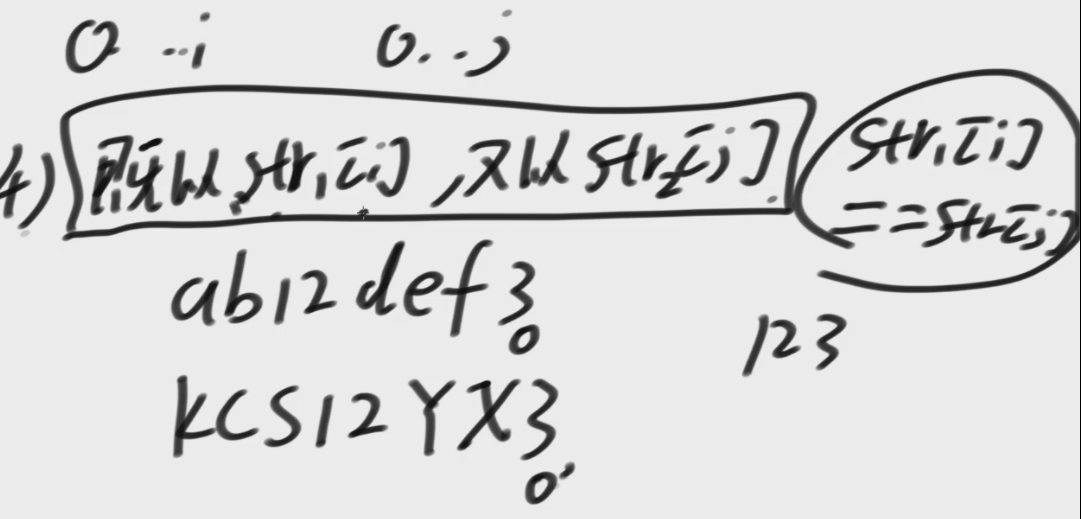 0 ..i 0..j
4) 既以str1[i],又以str2[j] str1[i]
==str2[j]
ab12def3
123
KCS12YX3